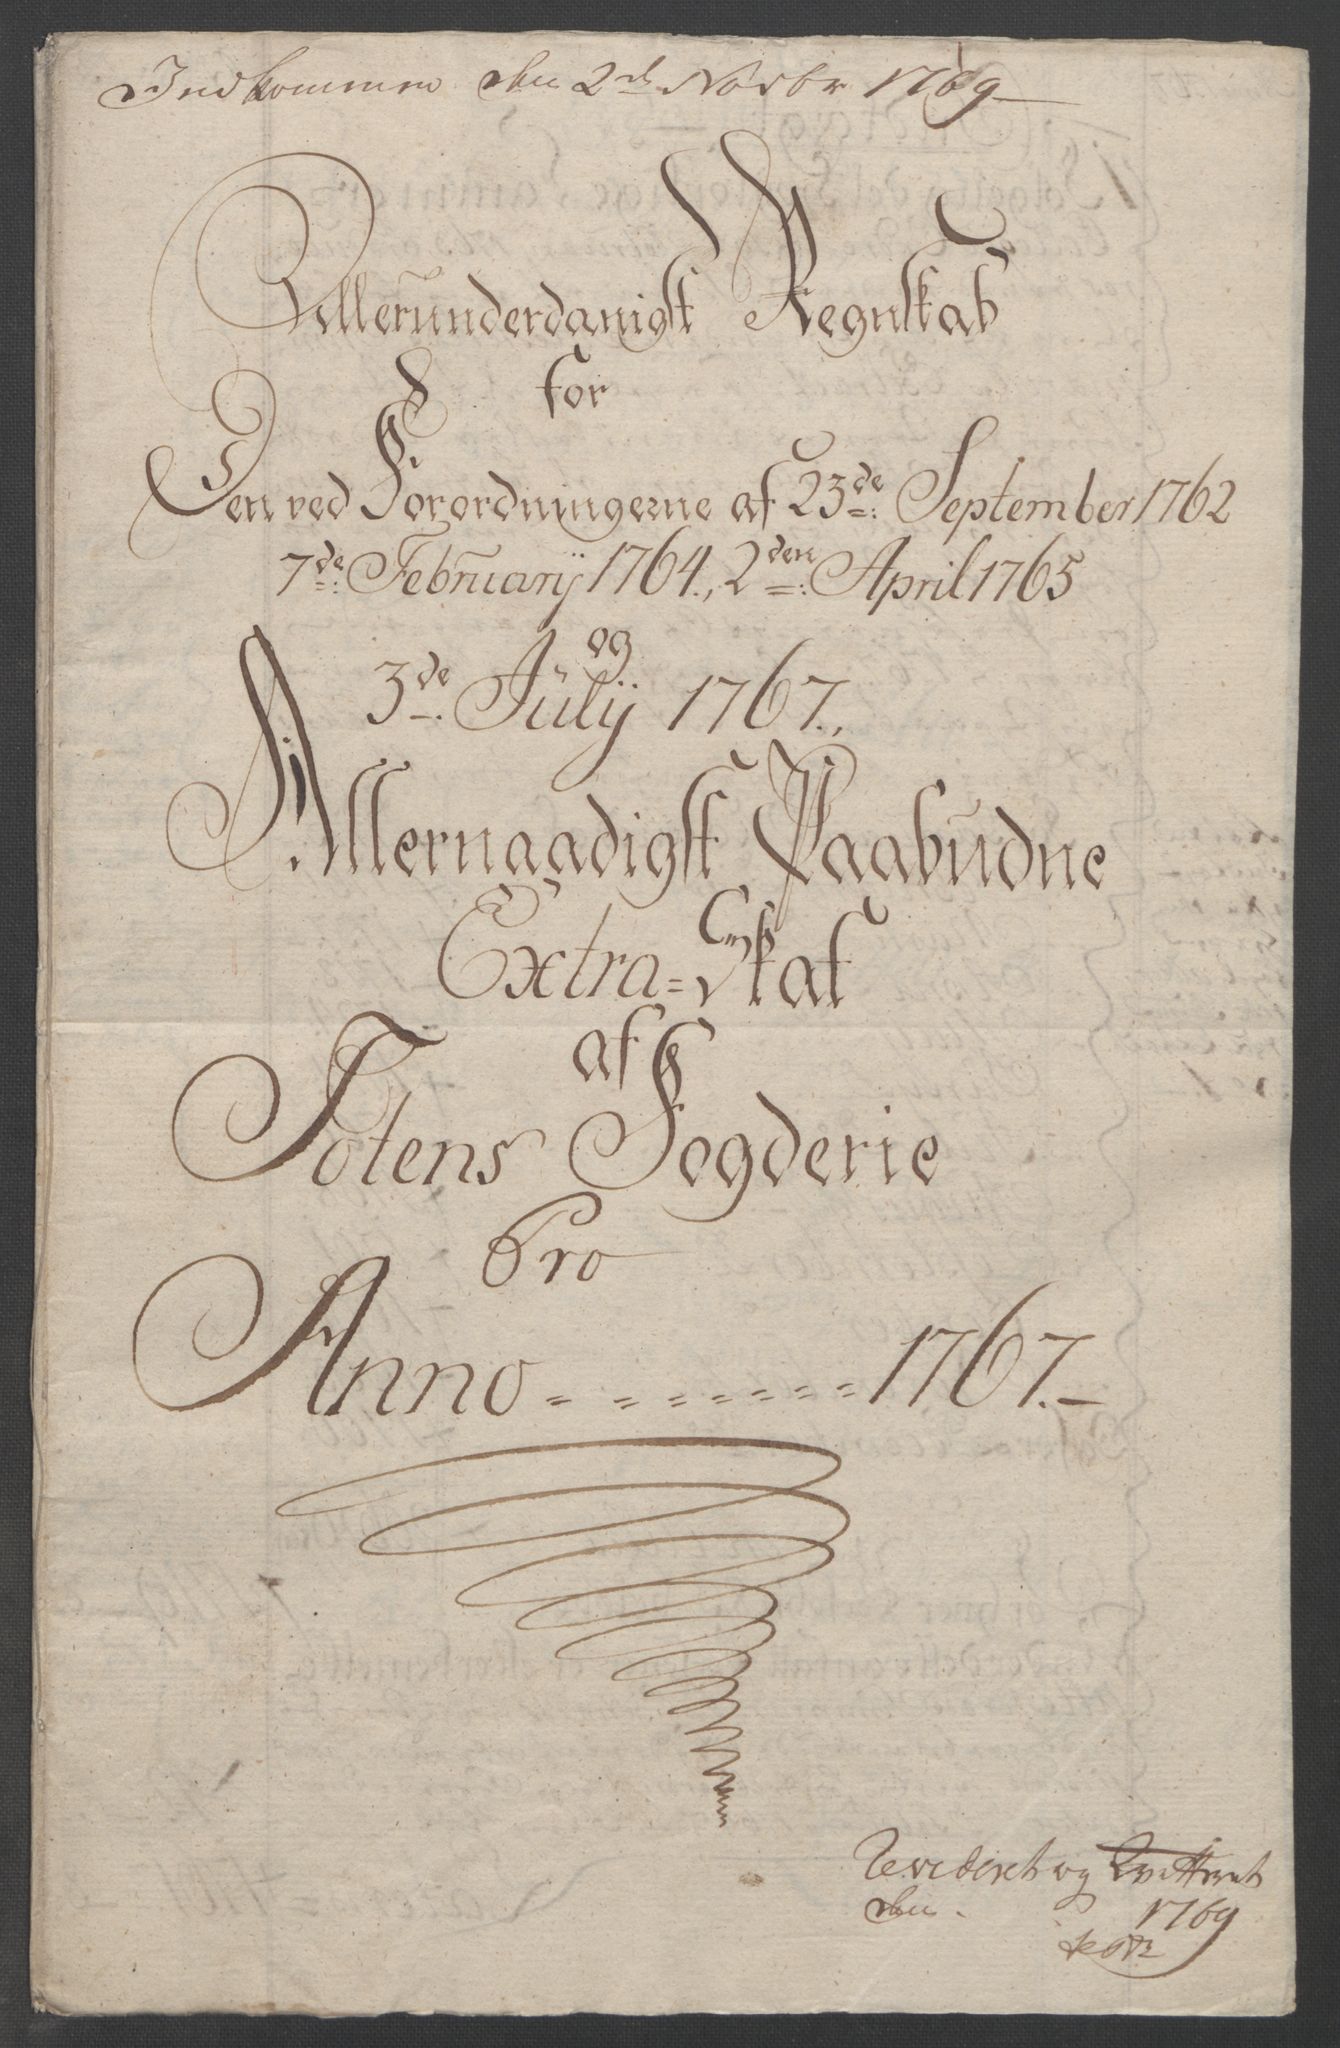 Indkommen den 2de Novbr 1769
Allerunderdanigst Regnskab
for
Den ved Forordningerne af 23de: September 1762
7de: Februarij 1764., 2den: April 1765
og
3de. Julij 1767.,
Allernaadigst Paabudne
Extra=Skat
af
Totens Fogderie
Pro
Anno - - - - - - - 1767.-
Revideret og Qvitteret
den 1769